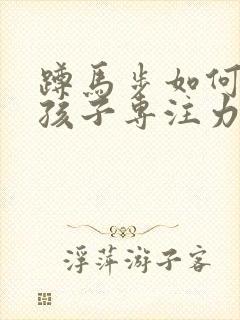 蹲馬步如何
孩子專注力
浮萍游子客